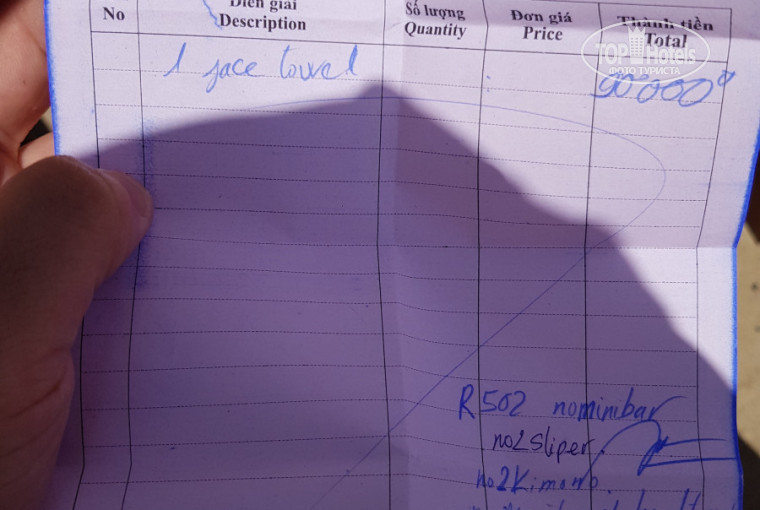 No Diễn giải Số lượng Đơn giá Thành tiền
Description Quantity Price Total
TOPHotels
ФОТО ТУРИСТА
1 face towel 90'000đ
R502 nominibar
no2Sliper
no2Kimono